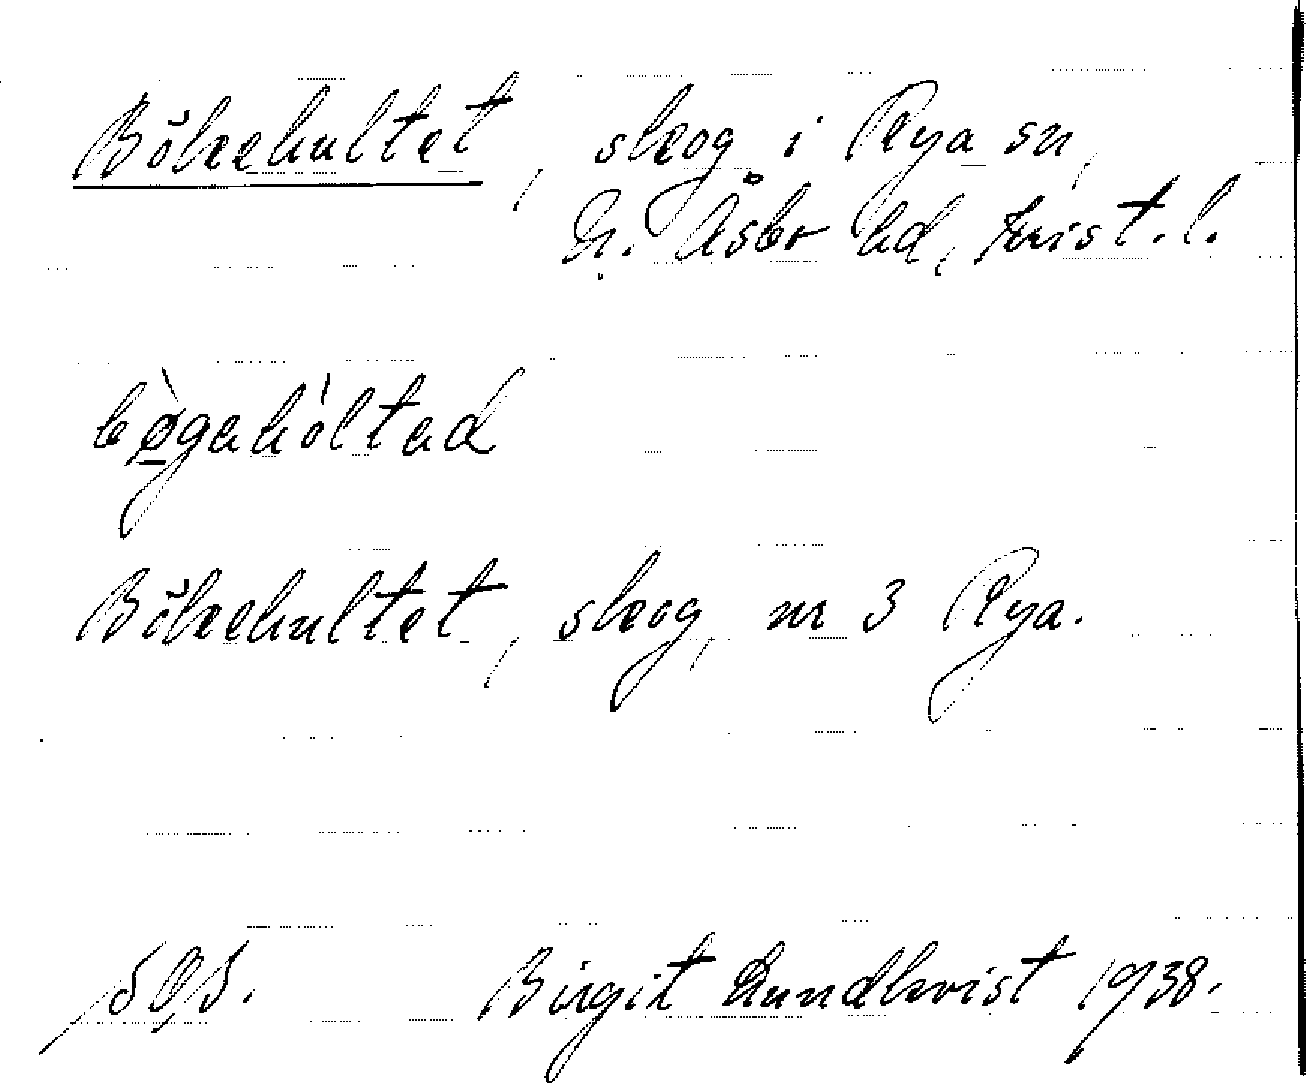 Bökehultet, skog i Rya sn,
N. Åsbo hd, Krist. l.
bø̀gahóltad
Bökehultet, skog, nr 3 Rya.
Birgit Lundkvist 1938.